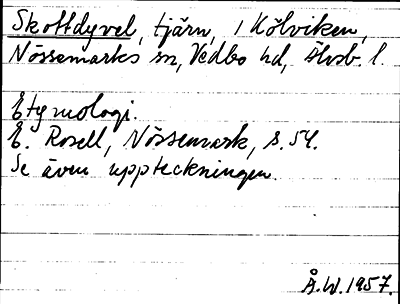 Skottdyvel, tjärn, i Kölviken,
Nössemarks sn, Vedbo hd, Älvsb. l.
Etymologi.
E. Rosell, Nössemark, s. 54.
Se även uppteckningen.
Å.W. 1957.